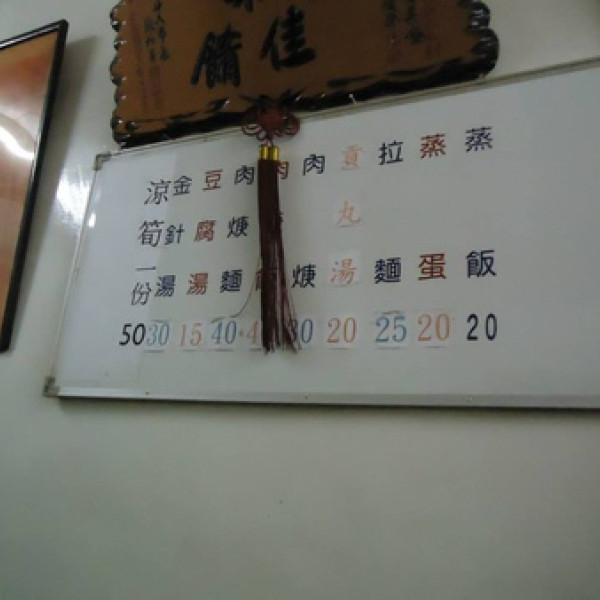 佳
餚
蒸飯 20
蒸蛋 20
拉麵 25
貢丸湯 20
肉焿 30
肉
肉焿麵 40
豆腐湯 15
金針湯 30
涼筍一份 50